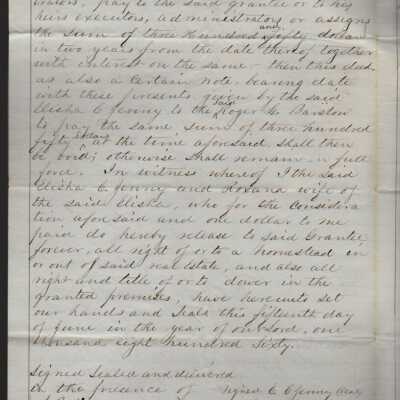 trators, pay to the said grantee or to his
heirs executors, administrators or assigns
the sum of three hundred and fifty dollars
in two years from the date thereof together
with interest on the same - then this deed
as also a certain note bearing date
with these presents given by the said
Elisha C Jenny to the said Roger L. Barstow
to pay the same sum of three hundred
fifty dollars at the time aforesaid, shall then
be void; otherwise shall remain in full
force. In witness whereof I the said
Elisha C Jenney and Roxana wife of
the said Elisha, who for the considera
tion aforesaid and one dollar to me
paid do hereby release to said Grantee
forever, all right of or to a homestead in
or out of said real estate, and also all
right and title of or to dower in the
granted premises, have hereunto set
our hands and seals this fifteenth day
of June in the year of our Lord, one
thousand eight hundred Sixty.
Signed Sealed and delivered
in the presence of Elisha C Jenney (seal)